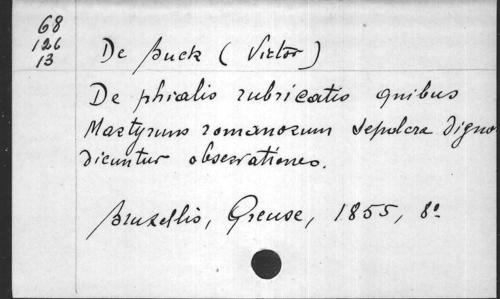 68
126
13
De Buck (Victor)
De phialis rubricatis quibus
Martyrum romanorum sepulcra digno
dicuntur observationes.
Bruxellis, Greuse, 1855, 8º